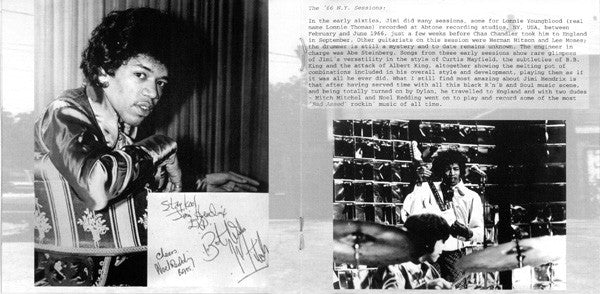 The '66 N.Y. Sessions:
In the early sixties, Jimi did many sessions, some for Lonnie Youngblood (real
name Lonnie Thomas) recorded at Abtone recording studios, NY, USA, between
February and June 1966, just a few weeks before Chas Chandler took him to England
in September. Other guitarists on this session were Herman Hitson and Lee Moses;
the drummer is still a mystery and to date remains unknown. The engineer in
charge was Abe Steinberg. Songs from these early sessions show rare glimpses
of Jimi's versatility in the style of Curtis Mayfield, the subtleties of B.B.
King and the attack of Albert King, altogether showing the melting pot of
combinations included in his overall style and development, playing them as if
it was all he ever did. What I still find most amazing about Jimi Hendrix is
that after having served time with all this black R'n'B and Soul music scene,
and being totally turned on by Dylan, he travelled to England and with two dudes
- Mitch Mitchel and Noel Redding went on to play and record some of the most
'Bad Assed' rockin' music of all time.
Stay Kool
Jimi Hendrix
Cheers
Noel Redding
Mitch